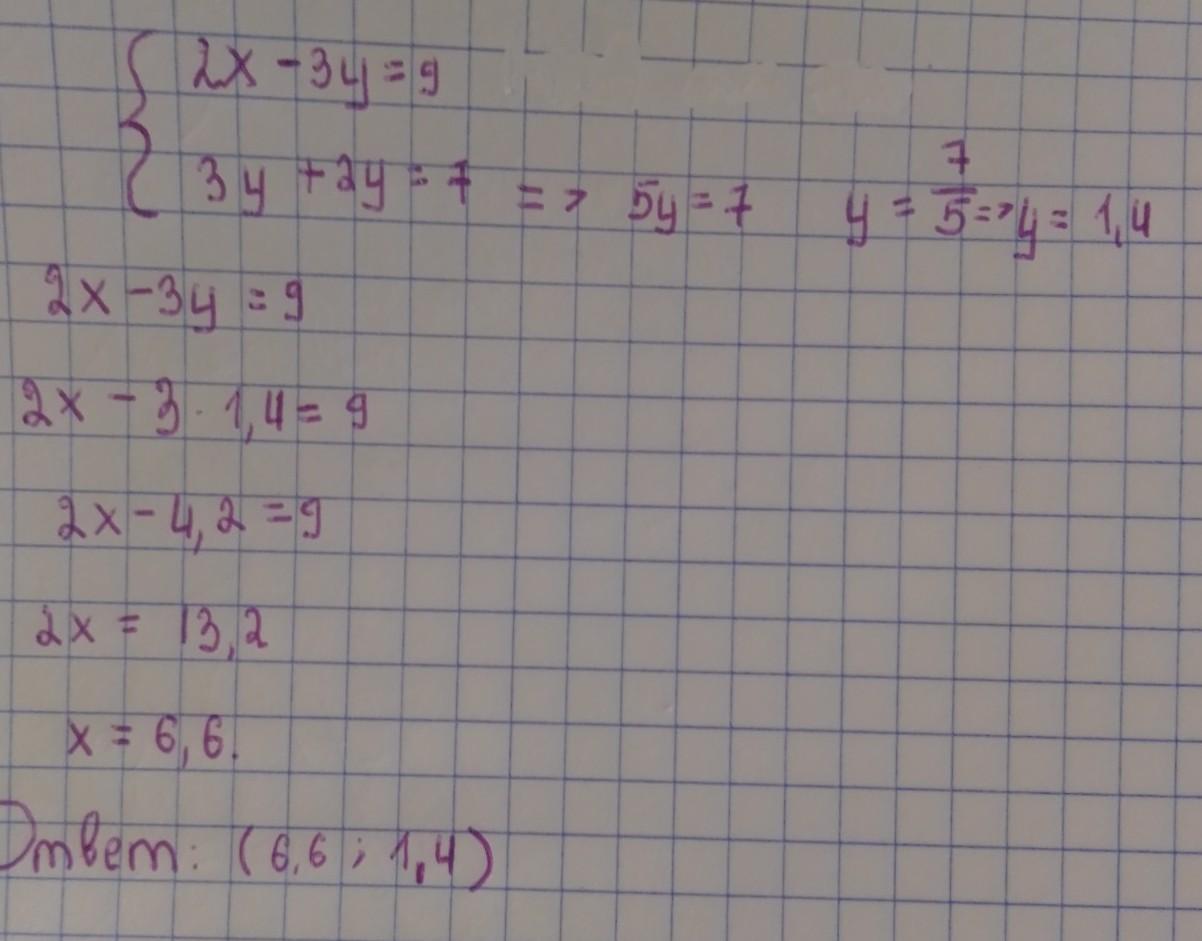 2x - 3y = 9
3y + 2y = 7 => 5y = 7 y = 7/5 => y = 1,4
2x - 3y = 9
2x - 3 · 1,4 = 9
2x - 4,2 = 9
2x = 13,2
x = 6,6.
Ответ: (6,6 ; 1,4)